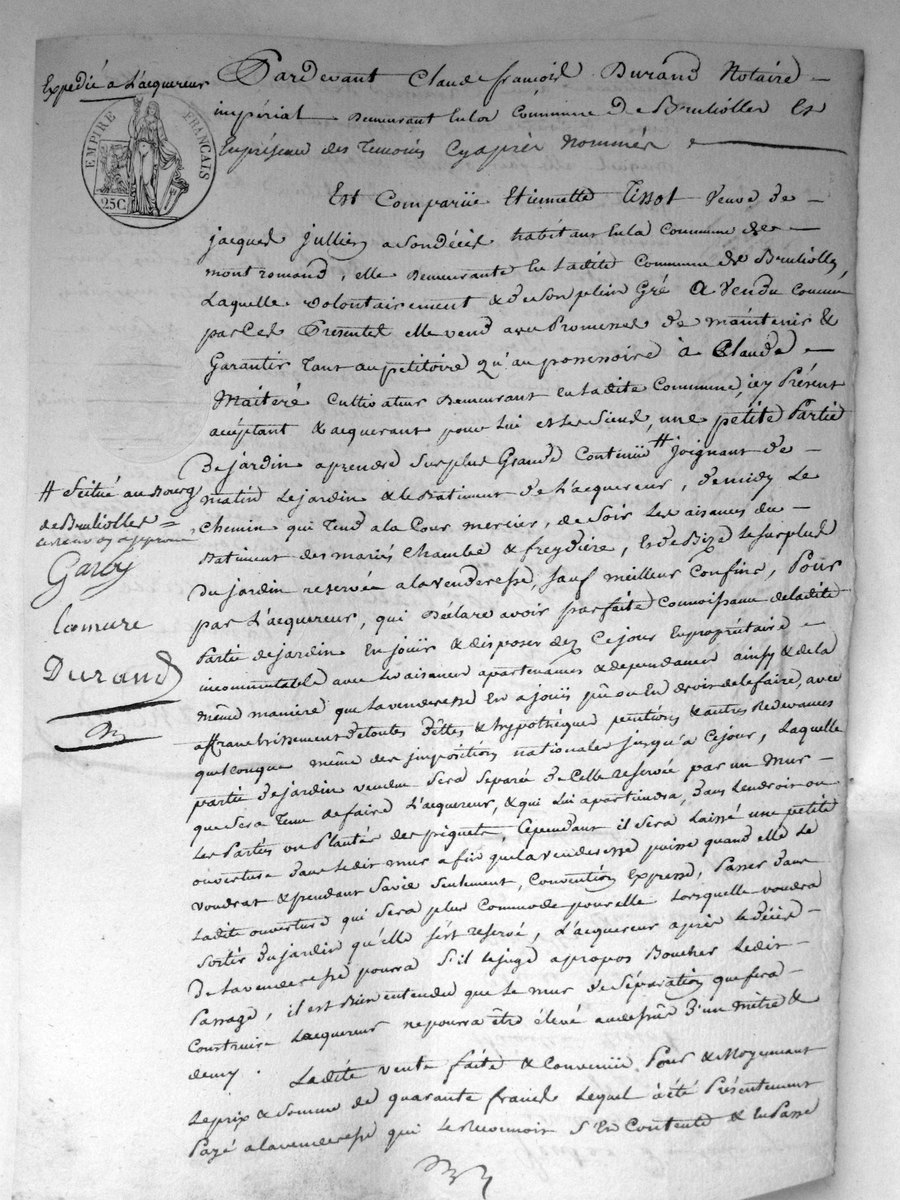 Expedié a L'acquereur
EMPIRE FRANÇAIS
25C
Pardevant Claude françois Durand Notaire
impérial Demeurant en la Commune De Brulioller Et
En présence des Temoins Cy après Nommés
Est Comparüe Etiennette Tissot Veuve de
jacques jullien a Son décès habitant en la Commune de
montromand, elle Demeurante En Ladite Commune de Bruliolles,
Laquelle volontairement & de Son plein Gré a Vendu Comme
par Ces Présentes elle vend avec Promesses de maintenir &
Garantir Tant au petitoire qu'au possessoire à Claude
Maiteré Cultivateur Demeurant en Ladite Commune, icy Présent
acceptant & acquerant pour Lui et Les Siens, une petite Partie
De jardin a prendre Sur plus Grande Contenüe # Joignant de
matin Le jardin & le Batiment de L'acquereur, de midy Le
chemin qui Tend a la Cour mercier, de Soir Les aisances du
Batiment des mariés Chambe & freydiere, Et de Bize le Surplus
Du jardin reservée a la venderesse, Sauf meilleur Confins, Pour
par L'acquereur, qui Déclare avoir parfaite Connoissance de ladite
Partie de jardin En joüir & disposer dez Ce jour En propriétaire
incommutable avec Les aisances apartenances & dependances ainsy & de la
même maniere que La venderesse En a joüi pû ou En droit de le faire, avec
affranchissement de toutes Dettes & hypothèques pensions & autres Redevances
quelconque même des jmposition nationales jusqu'à Ce jour, Laquelle
partie De jardin vendue Sera Separée De Celle reservée par un mur
que Sera Tenu de faire L'acquereur, & qui Lui apartiendra, Dans Lendroit ou
Les Parties on Planté des piquets, Cependant il Sera Laissé une petite
ouverture Dans Ledit mur a fin que La venderesse puisse quand elle Le
voudrat & pendant Sa vie Seulement, Convention Expresse, Passer Dans
Ladite ouverture qui Sera plus Commode pour elle Lorsquelle voudra
Sortir Du jardin qu'elle S'est reservé, L'acquereur après Le décès
De La venderesse pourra S'il Le juge a propos Boucher Ledit
Passage, il est Bien entendu que Le mur de Séparation que fera
Construire Lacquereur ne pourra être élevé au dessûs D'un mètre &
demy. Ladite vente faite & Convenüe Pour & Moyennant
Le prix & Somme de quarante francs Lequel à été Présentement
Payé a La venderesse qui Le Reconnoit S'En Contente & En Passe
# Scitué au Bourg
de Bruliolles
Garby
Lamure
Durand